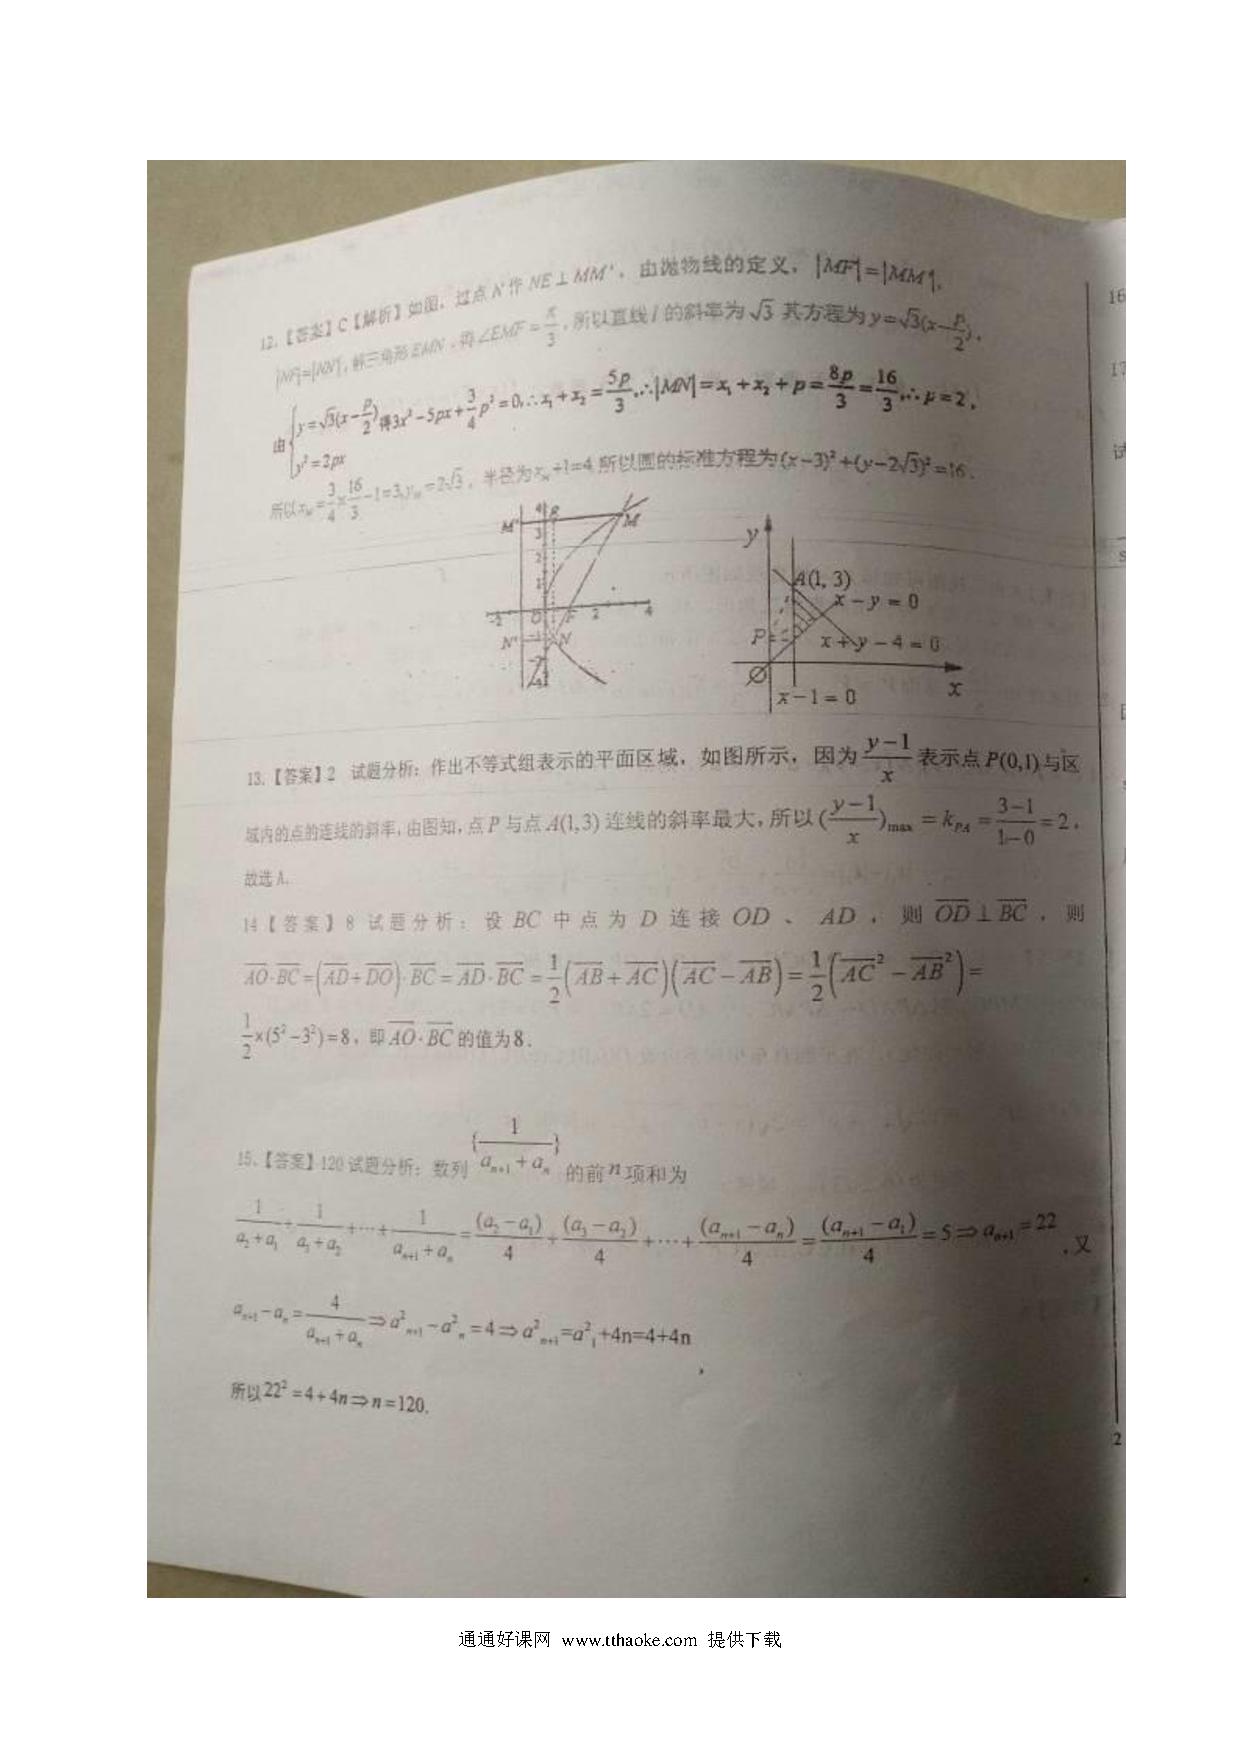 12.【答案】C【解析】如图，过点 N 作 NE⊥MM'，由抛物线的定义，|MF|=|MM'|，
|NF|=|NN'|，解三角形 EMN，得∠EMF=π/3，所以直线 l 的斜率为 √3 其方程为 y=√3(x-p/2)，
由{y=√3(x-p/2) y²=2px 得3x²-5px+3/4p²=0,∴x₁+x₂=5p/3,∴|MN|=x₁+x₂+p=8p/3=16/3,∴p=2，
所以x_M=3/4×16/3-1=3,y_M=2√3，半径为x_M+1=4,所以圆的标准方程为(x-3)²+(y-2√3)²=16．
M' 4 3 2 1 M
-2 O F 2 4
N' -1 N
-2
y
A(1, 3)
x-y=0
P
x+y-4=0
O x
x-1=0
13.【答案】2 试题分析：作出不等式组表示的平面区域，如图所示，因为 (y-1)/x 表示点 P(0,1) 与区
域内的点的连线的斜率，由图知，点 P 与点 A(1,3) 连线的斜率最大，所以 ((y-1)/x)max = k_PA = (3-1)/(1-0) = 2，
故选 A.
14【答案】8 试题分析：设 BC 中点为 D 连接 OD 、 AD ，则 OD⊥BC ，则
AO·BC=(AD+DO)·BC=AD·BC=1/2(AB+AC)(AC-AB)=1/2(AC²-AB²)=
1/2×(5²-3²)=8，即 AO·BC 的值为8．
15.【答案】120 试题分析：数列 {1/(aₙ₊₁+aₙ)} 的前 n 项和为
1/(a₂+a₁)+1/(a₃+a₂)+⋯+1/(aₙ₊₁+aₙ)=(a₂-a₁)/4+(a₃-a₂)/4+⋯+(aₙ₊₁-aₙ)/4=(aₙ₊₁-a₁)/4=5⇒aₙ₊₁=22，又
aₙ₊₁-aₙ=4/(aₙ₊₁+aₙ)⇒a²ₙ₊₁-a²ₙ=4⇒a²ₙ₊₁=a²₁+4n=4+4n，
所以22²=4+4n⇒n=120.
16
17
试
2
通通好课网 www.tthaoke.com 提供下载